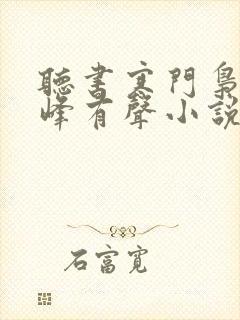 聽書寒門梟
峰有聲小說
石富寬